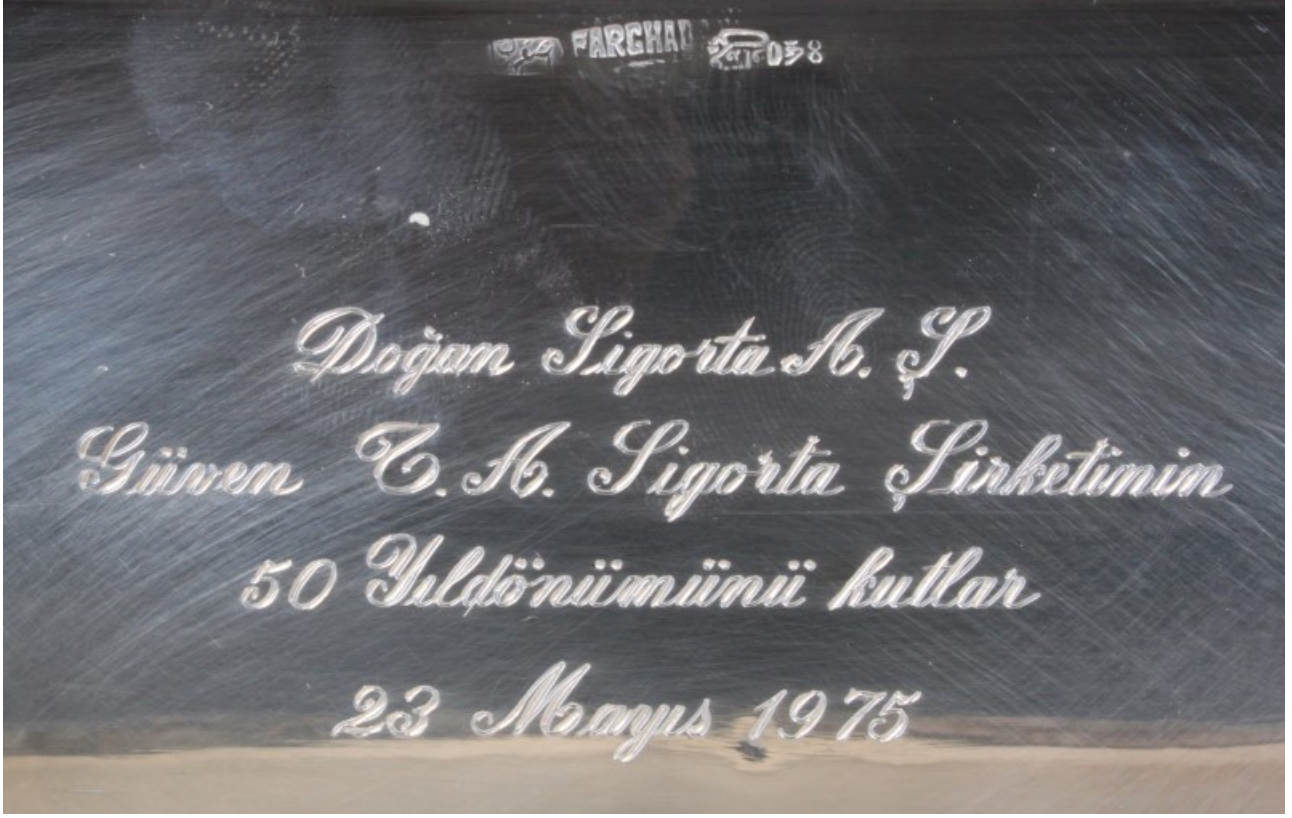 FARGHAD
Doğan Sigorta A. Ş.
Güven T. A. Sigorta Şirketinin
50 Yıldönümünü kutlar
23 Mayıs 1975